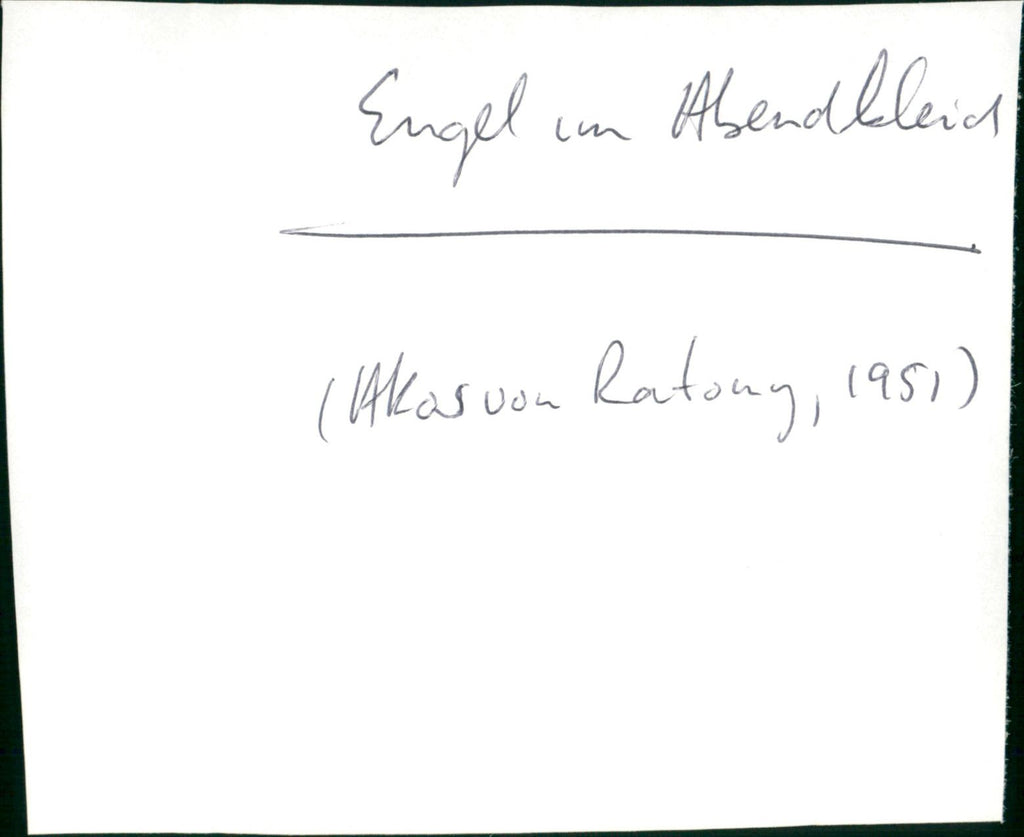 Engel im Abendkleid
(Akos von Ratony, 1951)